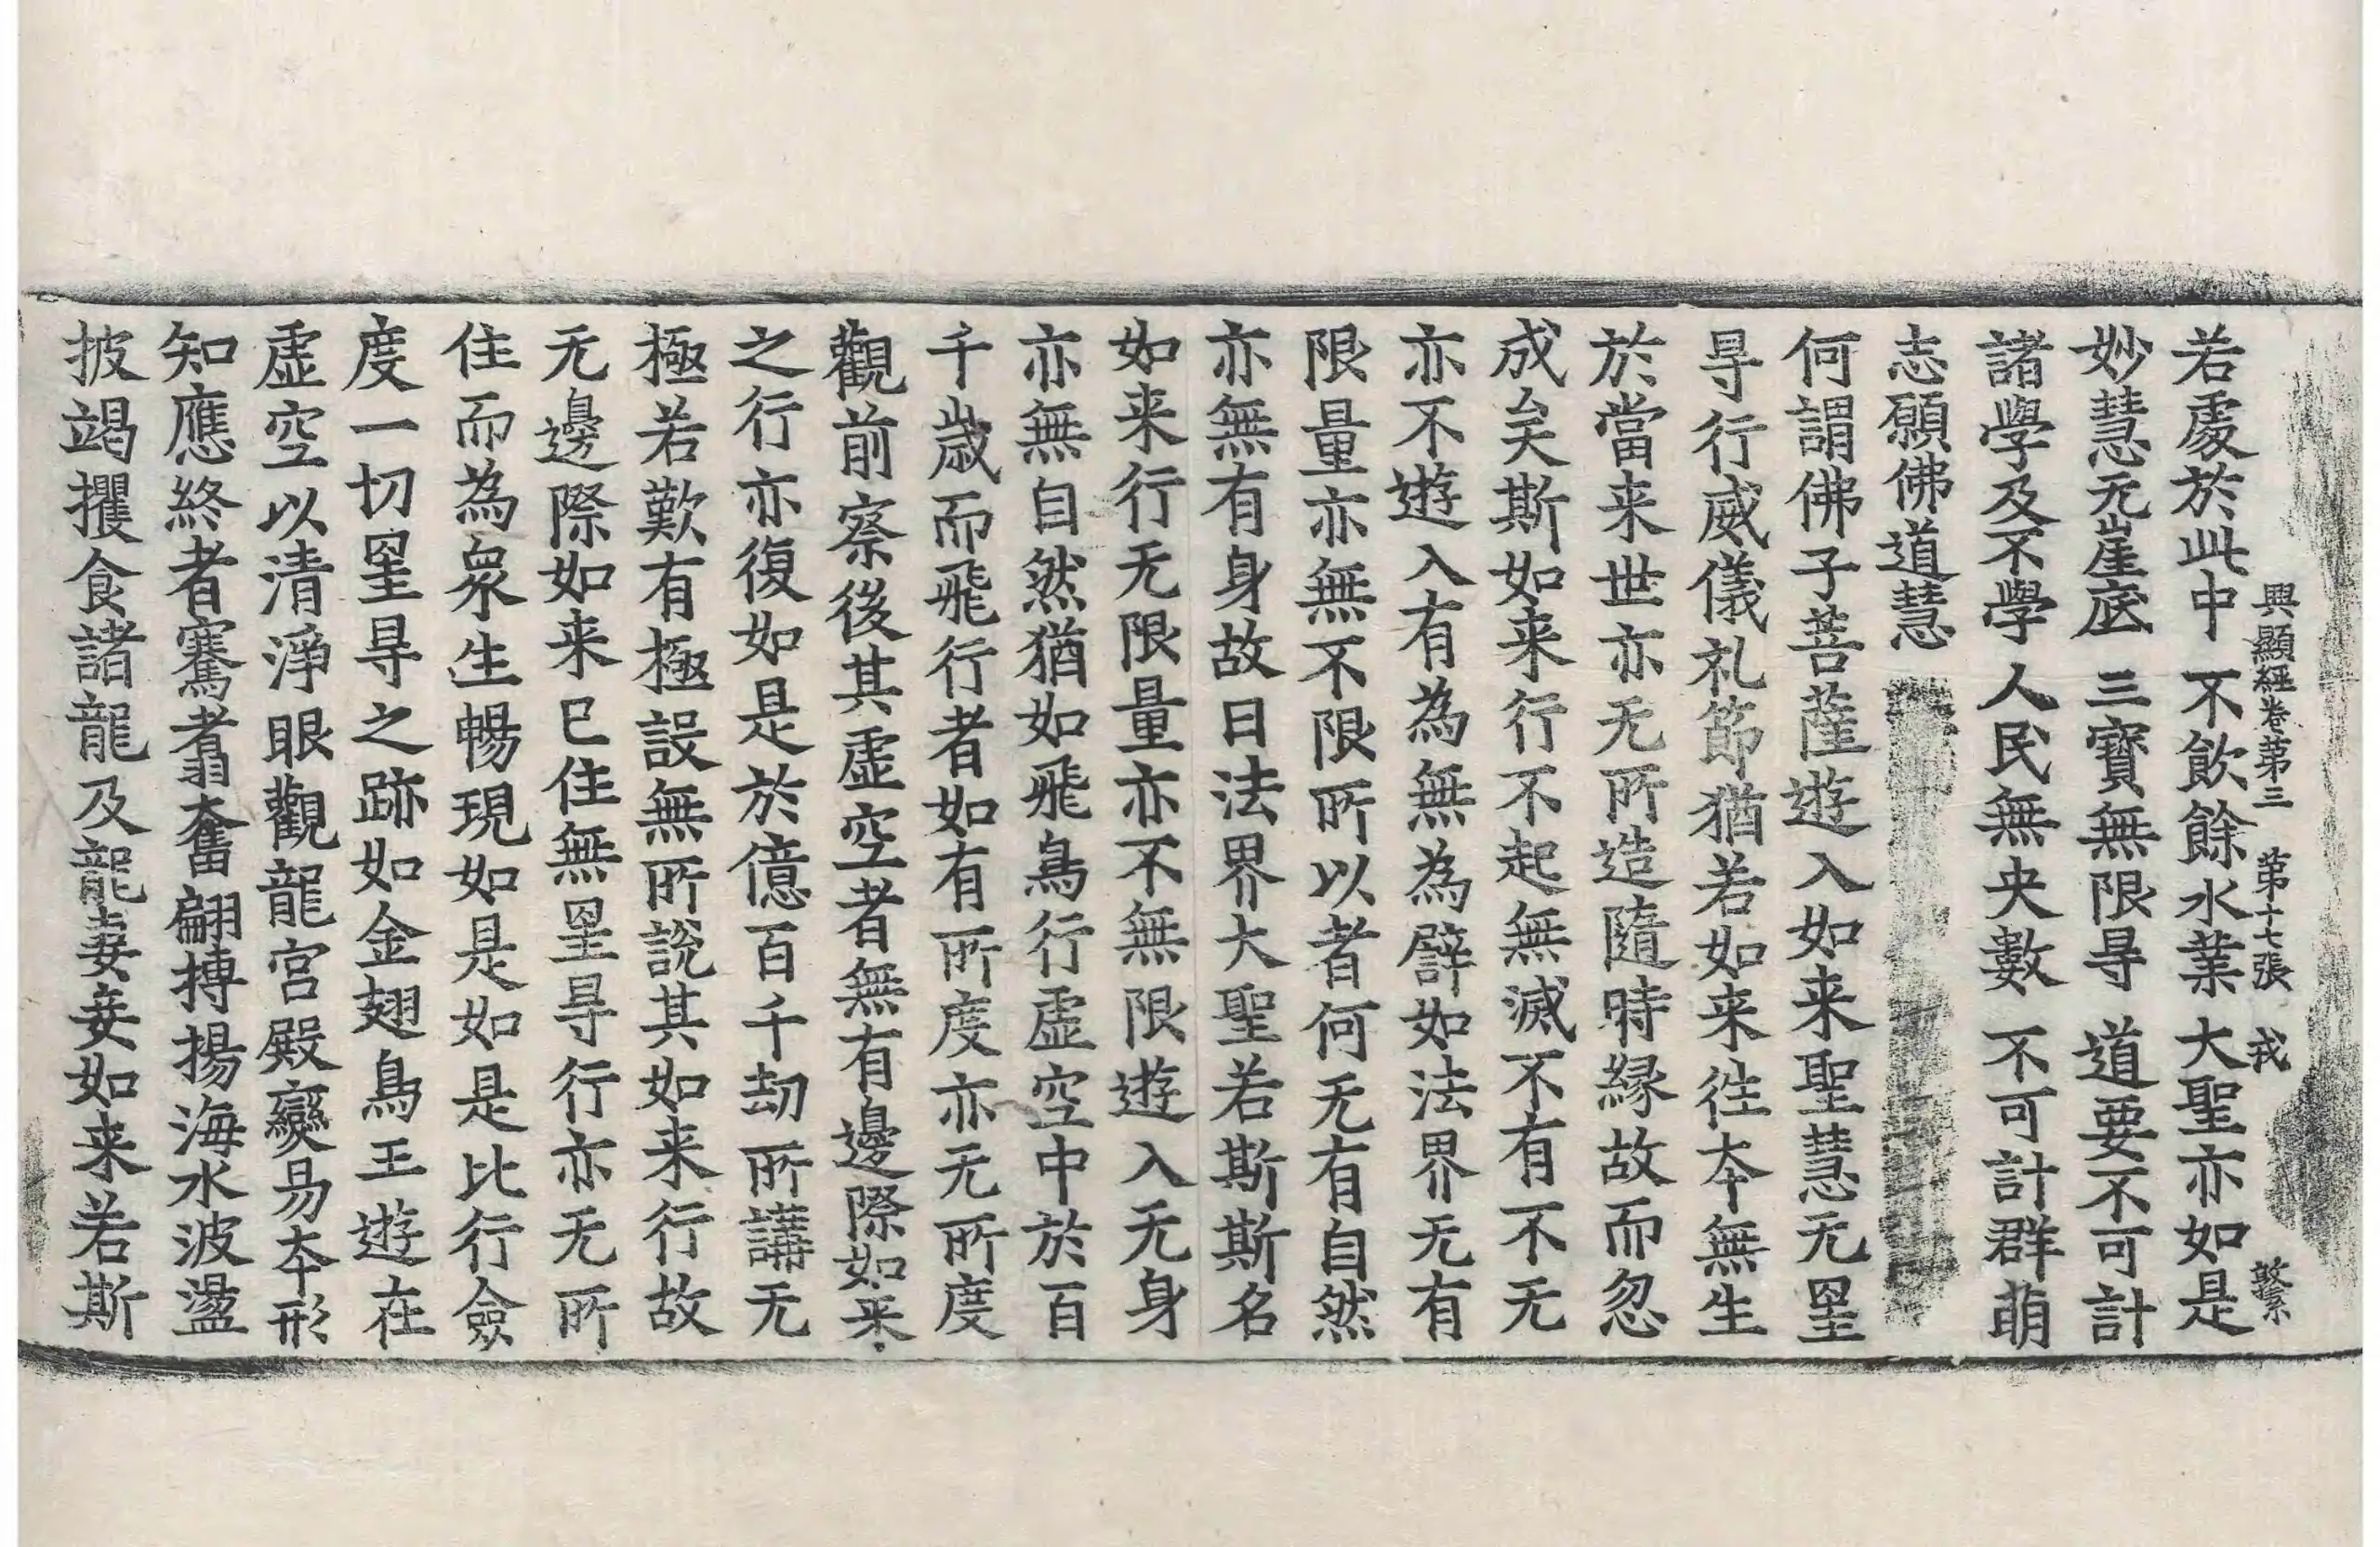 興顯經卷第三 第十七張 戎
若處於此中 不飲餘水業 大聖亦如是
妙慧无崖底 三寶無限㝵 道要不可計
諸學及不學 人民無央數 不可計群萌
志願佛道慧
何謂佛子菩薩遊入如来聖慧无罣
㝵行威儀礼節猶若如来往本無生
於當来世亦无所造隨時縁故而忽
成矣斯如来行不起無滅不有不无
亦不遊入有為無為譬如法界无有
限量亦無不限所以者何无有自然
亦無有身故曰法界大聖若斯斯名
如来行无限量亦不無限遊入无身
亦無自然猶如飛鳥行虛空中於百
千歳而飛行者如有所度亦无所度
觀前察後其虛空者無有邊際如来
之行亦復如是於億百千劫所講无
極若歎有極設無所說其如来行故
无邊際如来已住無罣㝵行亦无所
住而為衆生暢現如是如是比行僉
度一切罣㝵之跡如金翅鳥王遊在
虛空以清淨眼觀龍宮殿變易本形
知應終者騫翥奮翩摶揚海水波盪
披竭攫食諸龍及龍妻妾如来若斯